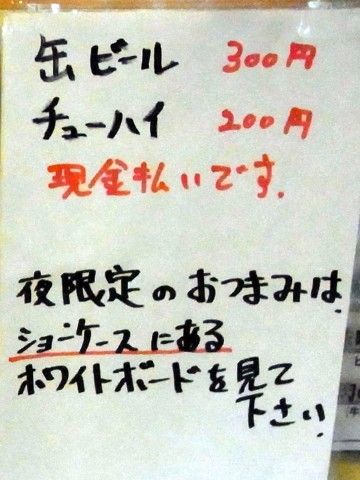 缶ビール 300円
チューハイ 200円
現金払いです.
夜限定のおつまみは.
ショーケースにある
ホワイトボードを見て
下さい!